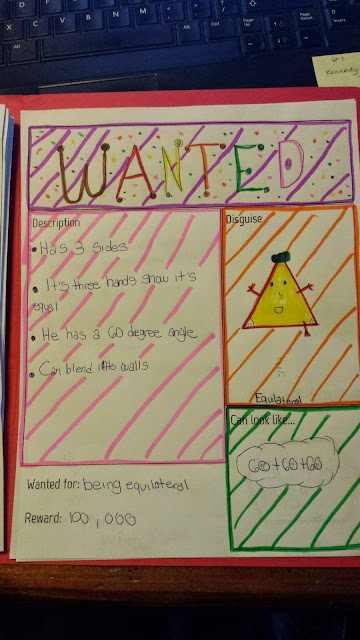 6th
Kennedy
WANTED
Description
Has 3 sides
It's three hands show it's
equal
He has a 60 degree angle
Can blend into walls
Disguise
Equilateral
Can look like...
60+60+60
Wanted for: being equilateral
Reward: 100,000